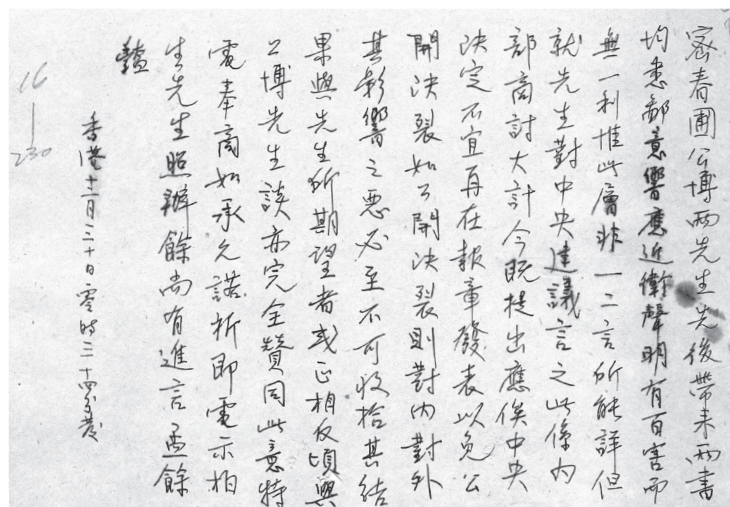 密春圃公博兩先生先後帶來兩書
均悉鄙意響應近衛聲明有百害而
無一利惟此層非一二言所能詳但
就先生對中央建議言之此係內
部商討大計今既提出應俟中央
決定不宜再在報章發表以免公
開決裂如公開決裂則對內對外
其影響之惡必至不可收拾其結
果與先生所期望者或正相反頃與
公博先生談亦完全贊同此意特
電奉商如承允諾祈即電示柏
生先生照辦餘尚有進言孟餘
香港十二月三十日零時二十四分發
16
|
230